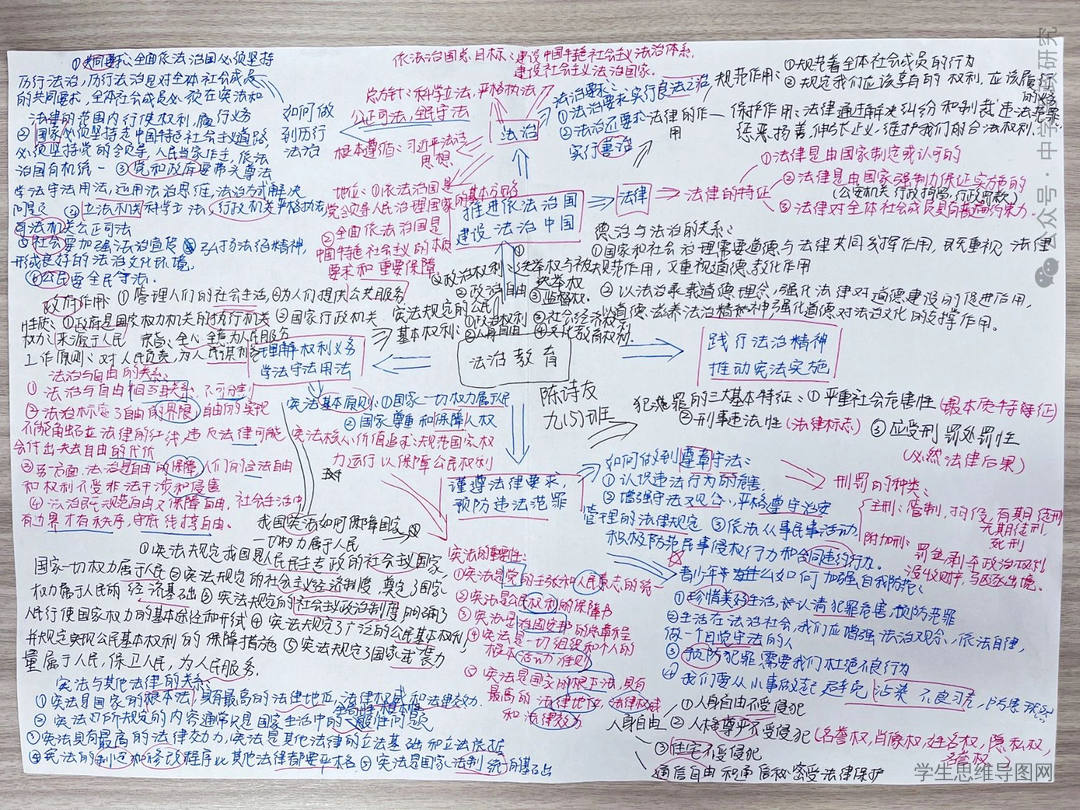 ①共同要求:全面依法治国必须坚持
厉行法治,厉行法治是对全体社会成员
的共同要求,全体社会成员必须在宪法和
法律的范围内行使权利,履行义务
②国家必须坚持走中国特色社会主义道路,
必须坚持党的领导,人民当家作主,依法
治国有机统一 ③党和政府要带头尊法
学法守法用法,运用法治思维,法治方式解决
问题 ④立法机关科学立法,行政机关严格执法
司法机关公正司法
⑤社会要加强法治宣传 ⑥弘扬法治精神,
形成良好的法治文化环境.
公民要全民守法.
如何做
到厉行
法治
依法治国总目标:建设中国特色社会主义法治体系,
建设社会主义法治国家.
总方针:科学立法,严格执法
公正司法,全民守法
根本遵循:习近平法治
思想
法治
法治要求:
①法治要求实行良法之治,
②法治还要求
实行善治
地位:①依法治国是
党领导人民治理国家的基本方略
②全面依法治国是
中国特色社会主义的本质
要求和重要保障
推进依法治国
建设法治中国
法律
法律的作
用
规范作用:
①规范着全体社会成员的行为
②规定我们应该享有的权利,应该履行
的义务
保护作用:法律通过解决纠纷和制裁违法犯罪
惩恶扬善,伸张正义,维护我们的合法权利.
法律的特征
①法律是由国家制定或认可的
②法律是由国家强制力保证实施的
(公安机关,行政拘留,行政罚款)
③法律对全体社会成员具有普遍约束力
德治与法治的关系:
①国家和社会治理需要道德与法律共同发挥作用,既重视法律
规范作用,又重视道德教化作用
②以法治承载道德理念,强化法律对道德建设的促进作用,
以道德滋养法治精神,强化道德对法治文化的支撑作用.
政府作用:①管理人们的社会生活,②为人们提供公共服务
性质:①政府是国家权力机关的执行机关 ②国家行政机关
权力:来源于人民 宗旨:全心全意为人民服务
工作原则:对人民负责,为人民谋利
宪法规定的公民
基本权利:
①政治权利
②人身自由
③社会经济权
④文化教育权利.
①选举权与被
选举权
②政治自由
③监督权.
理解权利义务
学法守法用法
法治教育
践行法治精神
推动宪法实施
陈诗友
九(5)班
法治与自由的关系:
①法治与自由相互联系,不可分割
②法治标定了自由的界限,自由的实现
不能触碰法律的红线,违反法律可能
会付出失去自由的代价
③另一方面,法治是自由的保障,人们的合法自由
和权利不受非法干涉和侵害
④法治既规范自由又保障自由,社会生活中
有边界才有秩序,守底线指自由.
宪法基本原则:①国家一切权力属于人民
②国家尊重和保障人权
宪法核心价值追求:规范国家权
力运行以保障公民权利
我国宪法如何保障国家
一切权力属于人民
①宪法规定我国是人民民主专政的社会主义国家
国家一切权力属于人民②宪法规定的社会主义经济制度,奠定了国家
权力属于人民的经济基础③宪法规定的社会主义政治制度明确了
人民行使国家权力的基本途径和形式④宪法规定了广泛的公民基本权利,
并规定实现公民基本权利的保障措施⑤宪法规定了国家武装力
量属于人民,保卫人民,为人民服务.
宪法与其他法律的关系:
①宪法是国家的根本法,具有最高的法律地位,法律权威和法律效力.
②宪法所规定的内容通常是国家生活中的一般性问题
③宪法具有最高的法律效力,宪法是其他法律的立法基础和立法依据
④宪法的制定和修改程序比其他法律都要严格⑤宪法是国家法制统一的基石
谨遵法律要求,
预防违法犯罪
宪法的重要性:
①宪法是党的主张和人民意志的统一
②宪法是公民权利的保障书
③宪法是治国安邦的总章程
④宪法是一切组织和个人的
根本活动准则
⑤宪法是国家的根本法,具有
最高的法律地位,法律权威
和法律效力
犯罪的三大基本特征:①严重社会危害性(最本质特征)
②刑事违法性(法律标志) ③应受刑罚处罚性
(必然法律后果)
如何做到遵章守法:
①认识违法行为的危害
②增强守法观念,严格遵守治安
管理的法律规定 ③依法从事民事活动,
积极防范民事侵权行为和合同违约行为.
刑罚的种类:
主刑:管制,拘役,有期徒刑
无期徒刑,
死刑
附加刑:罚金,剥夺政治权利
没收财产,与驱逐出境.
青少年为什么如何加强自我防范:
①珍惜美好生活,要认清犯罪危害,预防犯罪
②生活在法治社会,我们应增强法治观念,依法自律,
做一个自觉守法的人
③预防犯罪,需要我们杜绝不良行为
④我们要从小事做起,避免沾染不良习气,防患未然
人身自由
①人身自由不受侵犯
②人格尊严不受侵犯(名誉权,肖像权,姓名权,隐私权,
荣誉权
③住宅不受侵犯
通信自由和通信秘密受法律保护
公众号·中学教育研究
学生思维导图网